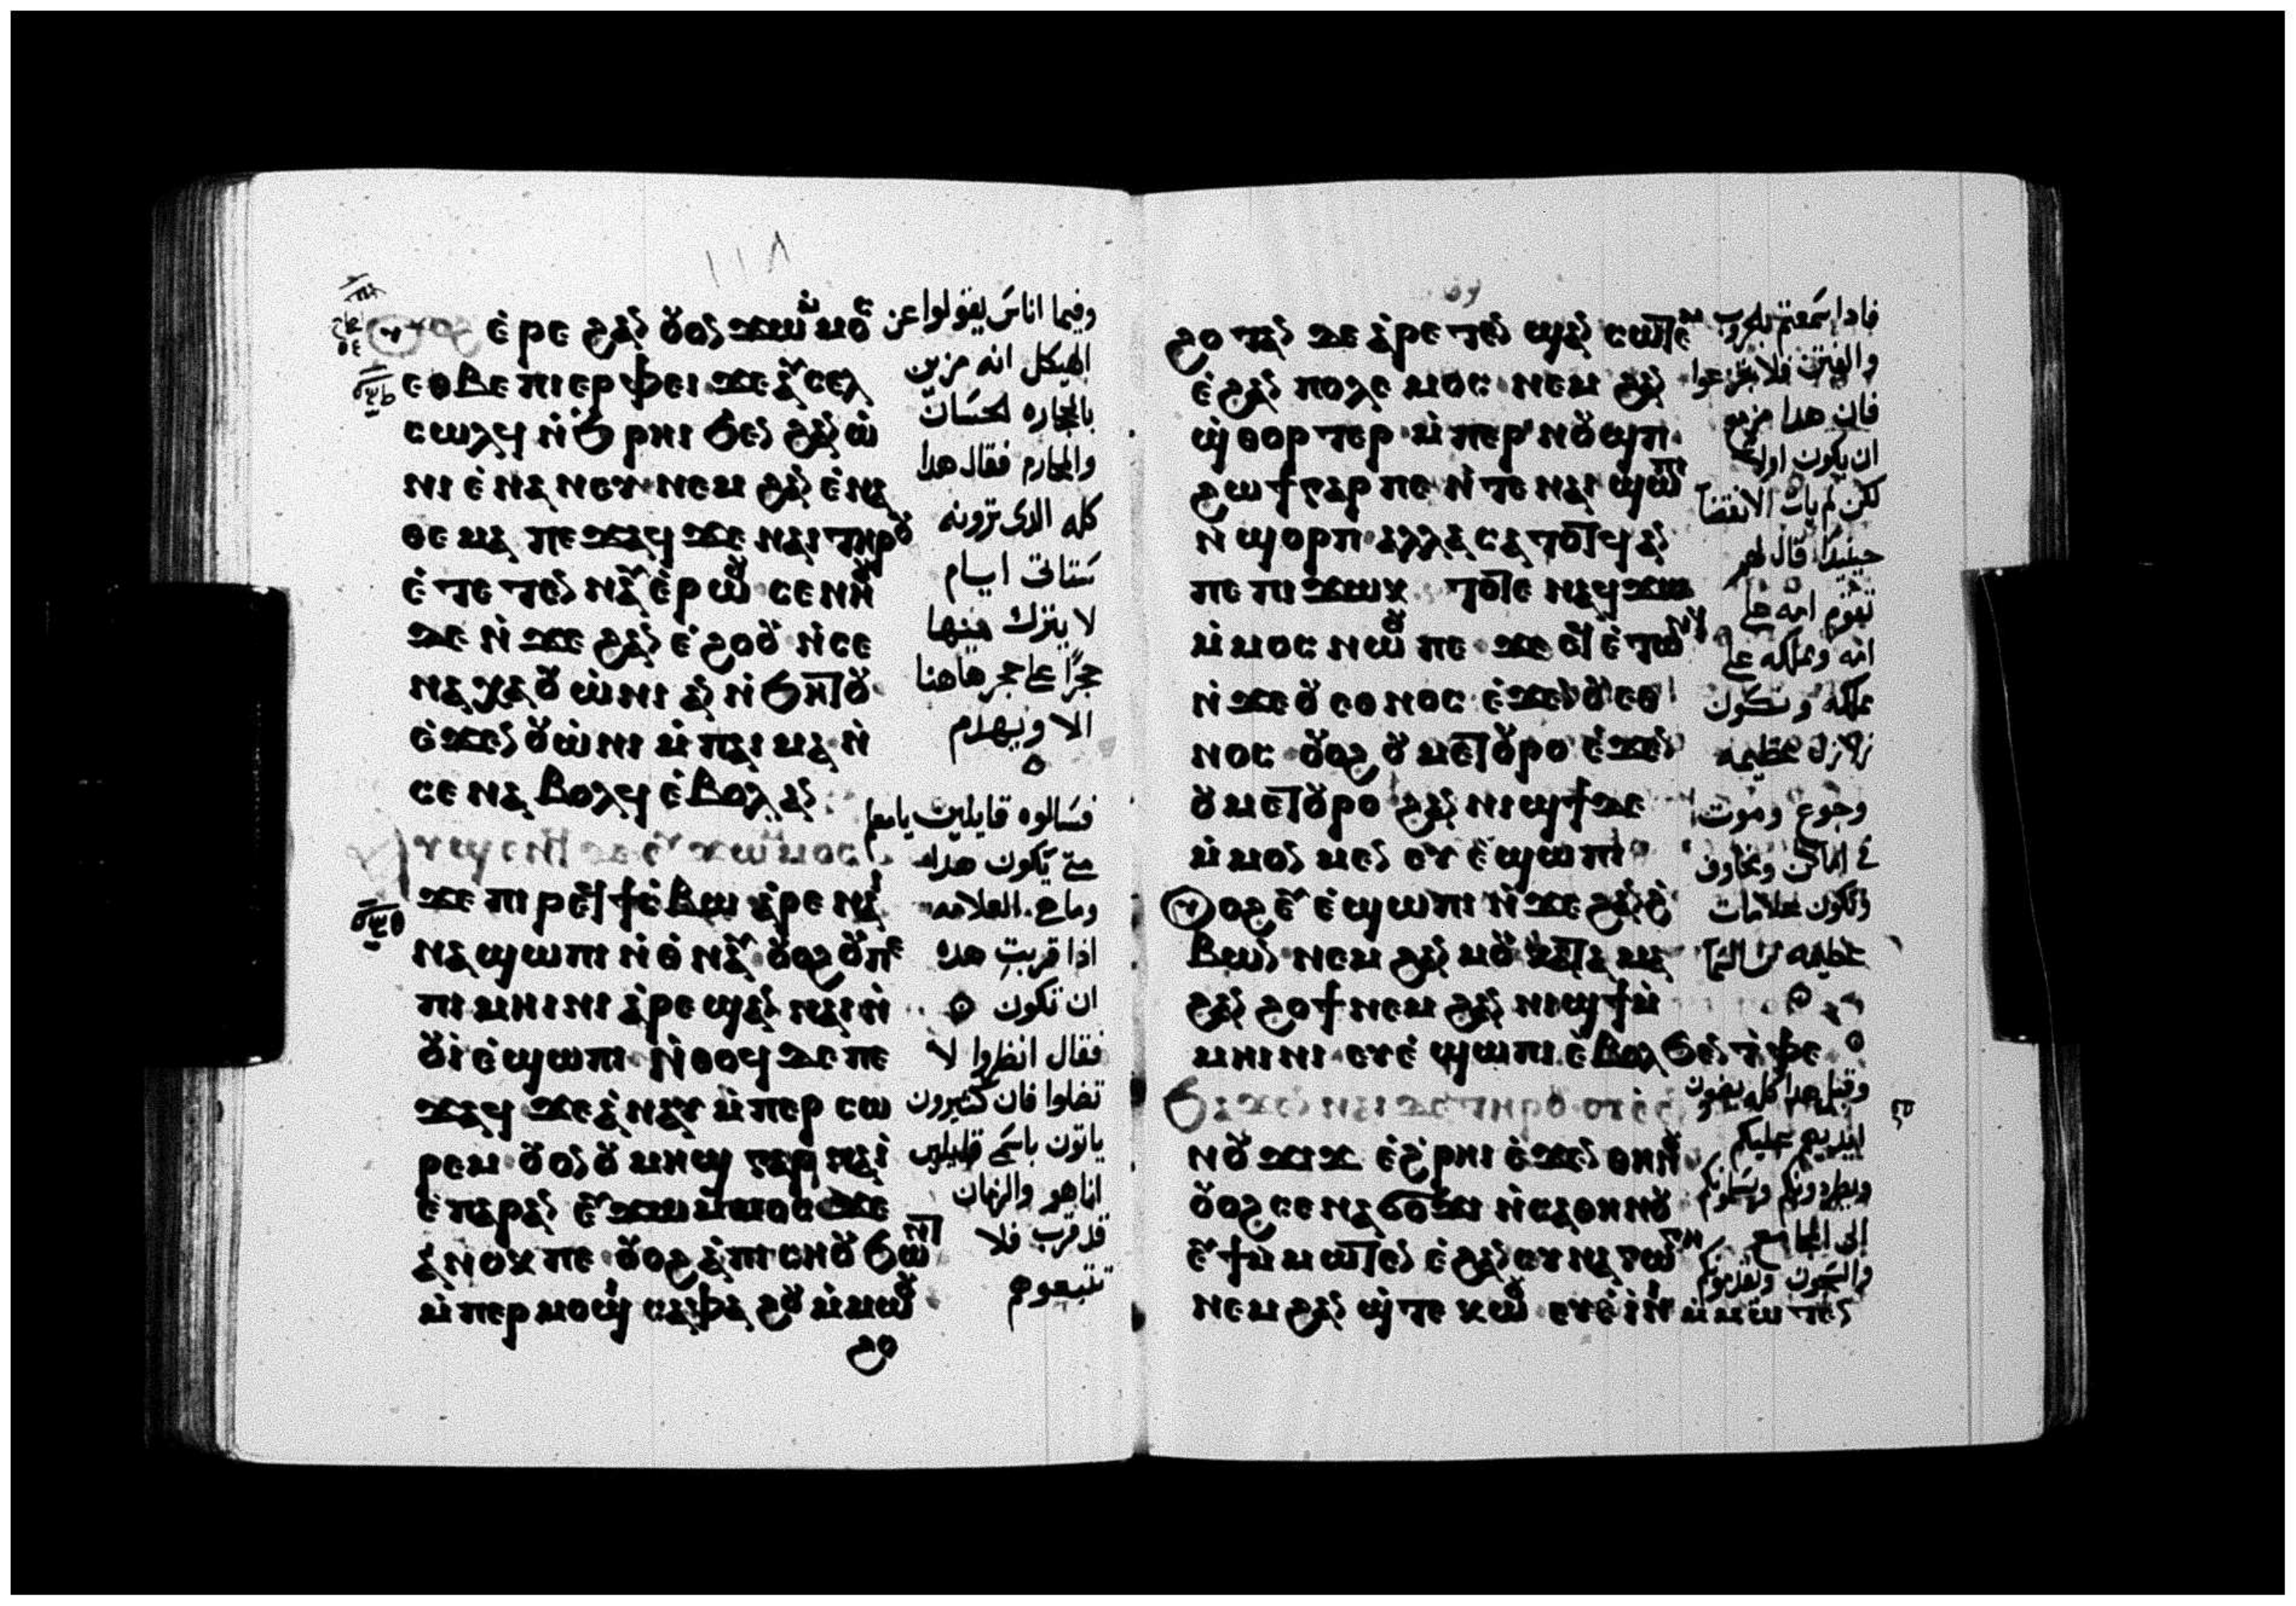 ١١٨
ⲟⲩⲟϩ ⲉ̇ⲣⲉ ϩⲁⲛ ⲟⲩⲟⲛ ϫⲱ ⲙ̇ⲙⲟⲥ
ⲉⲑⲃⲉ ⲡⲓⲉⲣⲫⲉⲓ ϫⲉ ⲁⲩⲥⲉⲗ
ⲥⲱⲗϥ ⲛ̇ϧⲣⲏⲓ ϧⲉⲛ ϩⲁⲛ ⲱ̇
ⲛⲓ ⲉ̇ⲛⲁⲛⲉⲩ ⲛⲉⲙ ϩⲁⲛ ⲉ̇ⲛⲁ
ⲑⲉⲙⲁ ⲡⲉϫⲁϥ ϫⲉ ⲛⲁⲓ ⲧⲏⲣⲟⲩ
ⲉ̇ⲧⲉⲧⲉⲛⲛⲁⲩ ⲉ̇ⲣⲱⲟⲩ ⲥⲉⲛⲏⲟⲩ
ⲇⲉ ⲛ̇ϫⲉ ϩⲁⲛ ⲉ̇ϩⲟⲟⲩ ⲛ̇ⲥⲉ
ⲛⲁⲭⲁ ⲟⲩⲱ̇ⲛⲓ ⲁⲛ ⲛ̇ϧⲏⲧⲟⲩ
ⲉ̇ϫⲉⲛ ⲟⲩⲱ̇ⲛⲓ ⲙ̇ⲡⲁⲓⲙⲁ ⲛ̇
ⲥⲉⲛⲁⲃⲟⲗϥ ⲉ̇ⲃⲟⲗ ⲁⲛ
ϫⲱ ⲙⲙⲟⲥ
ϫⲉ ⲡⲓⲣⲉϥϯⲥ̇ⲃⲱ ⲁ̇ⲣⲉ ⲛⲁⲓ
ⲛⲁϣⲱⲡⲓ ⲛ̇ⲑⲛⲁⲩ ⲟⲩⲟϩ ⲟⲩ ⲡⲉ
ⲡⲓⲙⲏⲓⲛⲓ ⲁ̇ⲣⲉϣⲁⲛ ⲛⲁⲓ ⲛ̇
ⲟⲩⲓ̇ ⲉ̇ϣⲱⲡⲓ ⲛ̇ⲑⲟϥ ⲇⲉ ⲡⲉ
ϫⲁϥ ϫⲉ ⲁ̇ⲛⲁⲩ ⲙ̇ⲡⲉⲣⲥⲱ
ⲣⲉⲙ ⲟⲩⲟⲛ ⲟⲩⲙⲏϣ ⲅⲁⲣ ⲛⲁⲓ̇
ⲉ̇ⲡⲁⲣⲁⲛ ⲉⲩϫⲱ ⲙ̇ⲙⲟⲥ ϫⲉ
ⲁ̇ⲛⲟⲕ ⲡⲉ ⲟⲩⲟϩ ⲁ̇ⲡⲓⲥⲏⲟⲩ ϧⲱⲛⲧ
ⲙ̇ⲡⲉⲣⲙⲟϣⲓ ⲥⲁⲫⲁϩⲟⲩ ⲙ̇ⲙⲱⲟⲩ
ϩⲟ
وفيما اناس يقولوا عن
الهيكل انه مزين
بالحجاره الحسان
والمحارم فقال هدا
كله الدى ترونه
ستاتى ايام
لا يترك فيها
حجرًا على حجر هاهنا
الا ويهدم
فسالوه قايلين يامعلم
متى يكون هدا
وما هى العلامه
ادا قربت هده
ان تكون
فقال انظروا لا
تضلوا فان كثيرون
ياتون باسمى قايلين
انا هو والزمان
قد قرب فلا
تتبعوهم
ϩⲟⲧⲁⲛ ⲇⲉ ⲁ̇ⲣⲉⲧⲉⲛϣⲁⲛⲥⲱⲧⲉⲙ
ⲉ̇ϩⲁⲛ ⲡⲟⲗⲉⲙⲟⲥ ⲛⲉⲙ ϩⲁⲛ
ϣ̇ⲑⲟⲣⲧⲉⲣ ⲙ̇ⲡⲉⲣⲛⲟⲩϣⲡ
ϩⲱϯ ⲅⲁⲣ ⲡⲉ ⲛ̇ⲧⲉ ⲛⲁⲓ ϣⲱⲡⲓ
ⲛ̇ϣⲟⲣⲡ ⲁⲗⲗⲁ ⲥⲁⲧⲟⲧϥ ⲁⲛ
ⲡⲉ ⲡⲓϫⲱⲕ ⲧⲟⲧⲉ ⲛⲁϥϫⲱ
ⲙ̇ⲙⲟⲥ ⲛⲱⲟⲩ ⲡⲉ ϫⲉ ⲉϥⲉ̇ⲧⲱⲛϥ
ⲛ̇ϫⲉ ⲟⲩⲉⲑⲛⲟⲥ ⲉ̇ϫⲉⲛ ⲟⲩⲉⲑ
ⲛⲟⲥ ⲟⲩⲟϩ ⲟⲩⲙⲉⲧⲟⲩⲣⲟ ⲉ̇ϫⲉⲛ
ⲟⲩⲙⲉⲧⲟⲩⲣⲟ ϩⲁⲛ ⲛⲓϣϯ ⲇⲉ
ⲙ̇ⲙⲟⲛⲙⲉⲛ ⲉⲩⲉ̇ϣⲱⲡⲓ
ⲟⲩⲟϩ ⲉⲩⲉ̇ϣⲱⲡⲓ ⲛ̇ϫⲉ ϩⲁⲛ ϩ̇
ⲃⲱⲛ ⲛⲉⲙ ϩⲁⲛ ⲙⲟⲩ ⲕⲁⲧⲁ ⲙⲁ
ϩⲁⲛ ϩⲟϯ ⲛⲉⲙ ϩⲁⲛ ⲛⲓϣϯ ⲙ̇
ⲙⲏⲓⲛⲓ ⲉⲩⲉ̇ϣⲱⲡⲓ ⲉ̇ⲃⲟⲗ ϧⲉⲛ ⲧ̇ⲫⲉ
ⲛⲟⲩϫⲓϫ ⲉ̇ϩ̇ⲣⲏⲓ ⲉ̇ϫⲉⲛ ⲑⲏⲛⲟⲩ
ⲟⲩⲟϩ ⲥⲉⲛⲁϭⲟϫⲓ ⲛ̇ⲥⲁ ⲑⲏⲛⲟⲩ
ⲉⲩϯ ⲙ̇ⲙⲱⲧⲉⲛ ⲉ̇ϩⲁⲛ ⲥⲩⲛⲁⲅⲱⲅⲏ
ⲛⲉⲙ ϩⲁⲛ ϣ̇ⲧⲉⲕⲱⲟⲩ ⲉⲩⲉ̇ⲓ̇ⲛⲓ ⲙ̇ⲙⲱⲧⲉⲛ
فادا سمعتم بالحروب
والفتن فلا تفزعوا
فان هدا مزمع
ان يكون اولا
لكن لم يات الانقضا
حينيدا قال لهم
تقوم امه على
امه ومملكه على
مملكه وتكون
زلازل عظيمه
وجوع وموت
فى اماكن ومخاوف
وتكون علامات
عظيمه من السما
وقبل هدا كله يضعون
ايديهم عليكم
ويطردونكم ويسلمونكم
الى المجامع
والسجون ويقدمونكم